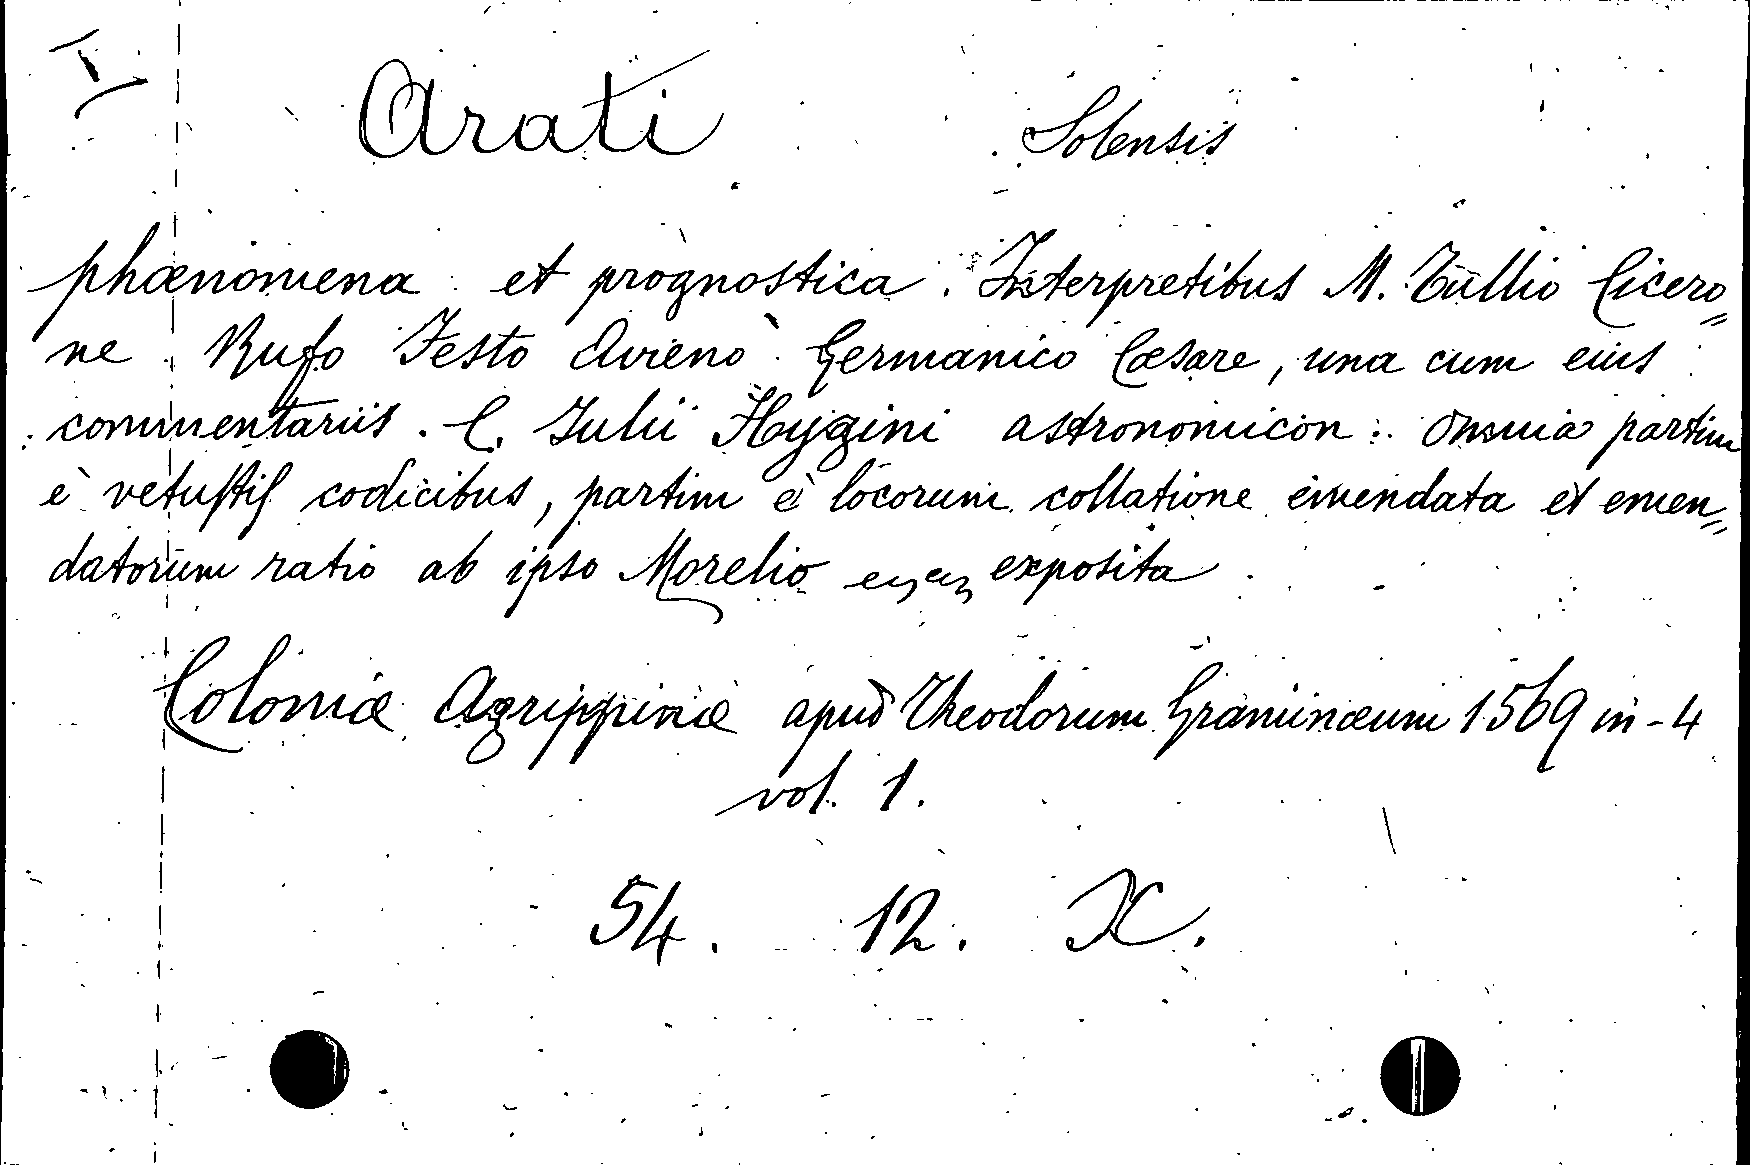 I
Arati Solensis
phænomena et prognostica. Interpretibus M. Tullio Cicero=
ne Rufo Festo Avieno Germanico Cæsare, una cum eius
commentariis. C. Julii Hygini astronomicon. Omnia partim
è vetustis codicibus, partim è locorum collatione emendata et emen=
datorum ratio ab ipso Morelio exposita
Coloniæ Agrippinæ apud Theodorum Graminæum 1569 in-4
vol. 1.
54. 12. X.